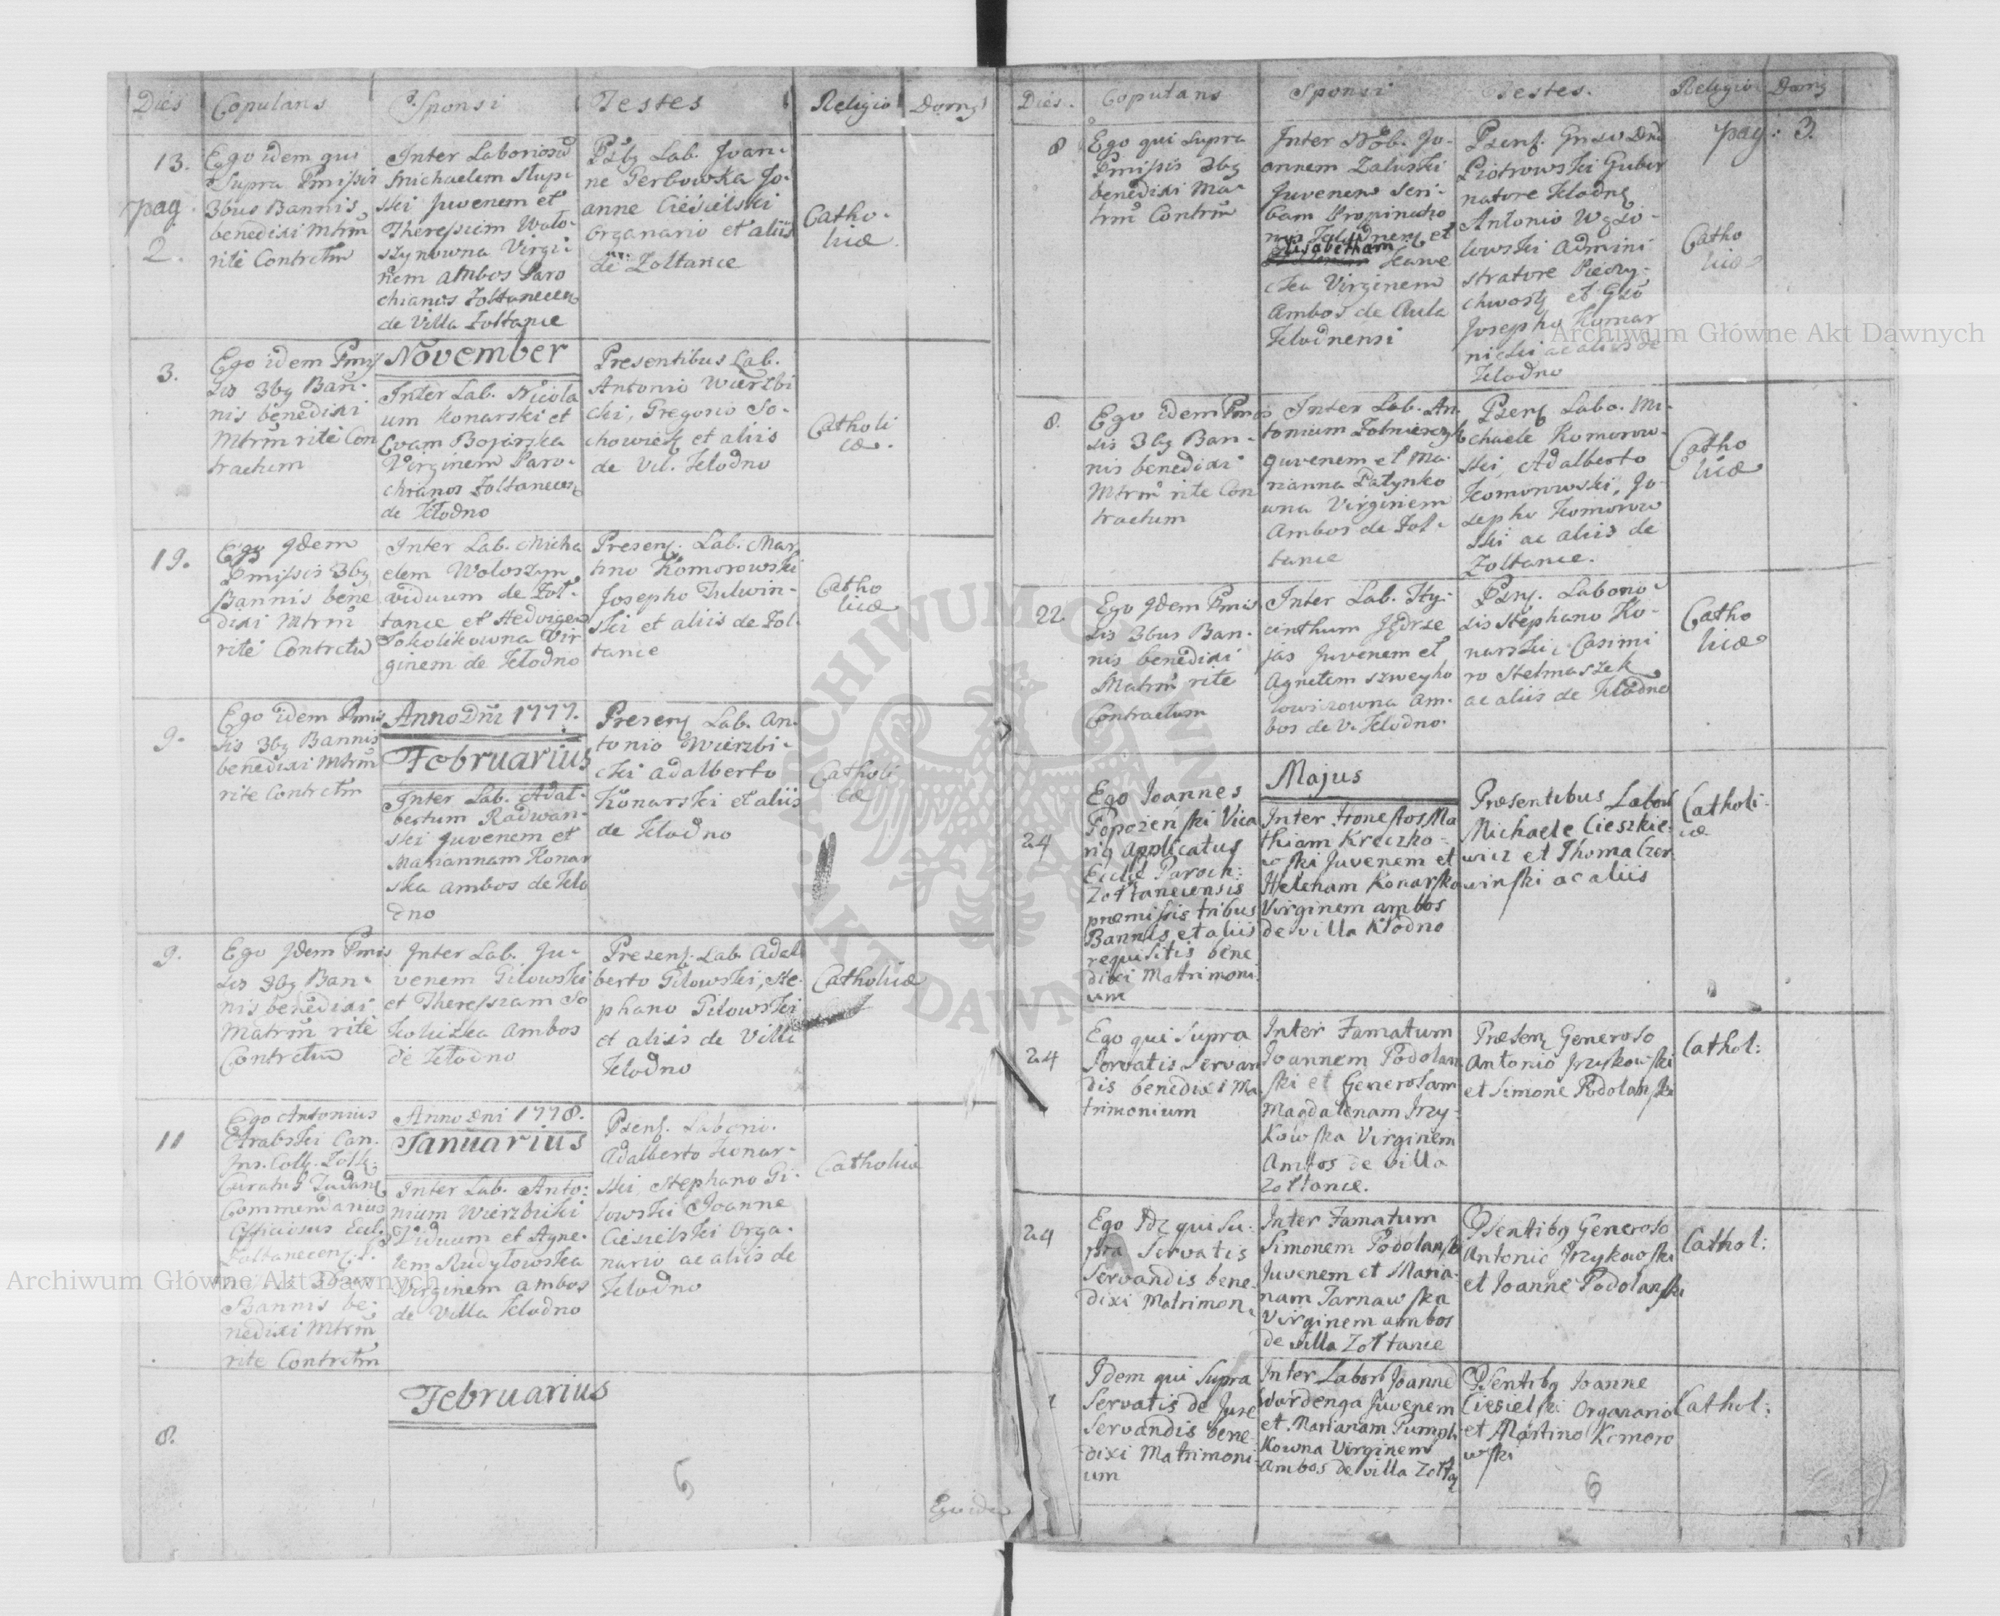 Dies Copulans Sponsi Testes Religio Domq
13.
pag.
2.
Ego idem qui
Supra Pmissis
3bus Bannis
benedixi Mtrm
rite Contrctm
Inter Laboriosū
Michaelem Słup-
ski Juvenem et
Theressiam Woło-
szynowna Virgi-
nem ambos Paro
chianos Żołtanecen
de Villa Żołtance
Joan-
ne Gerbowka Jo-
anne Ciesielski
Organario et aliis
de Zołtance
Catho-
licæ
3.
Ego idem Pmis
sis 3bq Ban-
nis benedixi
Mtrm rite Con
tractum
November
Inter Lab. Nicola
um Konarski et
Evam Bojarska
Virginem Paro-
chianos Zoltanecen
de Kłodno
Presentibus Lab.
Antonio Wierzbi
cki, Gregorio So-
chowicz et aliis
de Vil. Klodno
Catholi
cæ.
19.
Ego Idem
Pmissis 3bq
Bannis bene
dixi Mtrm
rite Contrctū
Inter Lab. Micha
elem Woloszyn
viduum de Zoł-
tance et Hedvigem
Sokolikowna Vir
ginem de Kłodno
Presenz. Lab. Mar
tino Komorowski
Josepho Julwin-
ski et aliis de Zol-
tance
Catho
licæ
9.
Ego idem Pmis
sis 3bq Bannis
benedixi Mtrm
rite Contrctm
Anno Dni 1777.
Februarius
Inter Lab. Adal-
bertum Radwan-
ski Juvenem et
Mariannam Konar
ska ambos de Klo
dno
Presenz Lab. An-
tonio Wierzbi-
cki Adalberto
Konarski et aliis
de Klodno
Catholi
cæ
9.
Ego Idem Pmis
sis 3bq Ban-
nis benedixi
Matrm rite
Contrctm
Inter Lab. Ju-
venem Gilowski
et Theressiam So
koluzka Ambos
de Kłodno
Presenz. Lab. Adal
berto Gilowski, Ste-
phano Gilowski
et aliis de Villi
Klodno
Catholicæ
11
Ego Antonius
Grabski Can.
Ins. Coll. Zolk:
Curatus
Commendarius
Officiosus Eccl.
Zoltanecenz. P-
missis 3bus
Bannis be-
nedixi Mtrm
rite Contrctm
Anno Dni 1778.
Januarius
Inter Lab. Anto-
nium Wierzbicki
Viduum et Agne-
tem Rudyłowska
Virginem ambos
de Villa Klodno
Psenz. Labori.
Adalberto Konar-
ski, Stephano Gi-
lowski Joanne
Ciesielski Orga-
nario ac aliis de
Klodno
Catholicæ
8.
Februarius
6
Ego idem
Dies. Copulans Sponsi Testes. Religio Domq
pag: 3.
8
Ego qui Supra
Pmissis 3bq
benedixi Ma-
trm Contrctm
Inter Nob. Jo-
annem Zaluski
Juvenem Scri-
bam Propinatio
nis Klodnens et
Elisabetham
Virginem
Ambos de Aula
Klodnensi
Psenz. Gnso Dno
Piotrowski Guber
natore Klodnę
Antonio Węzo-
lowski Admini
stratore
et Gso
Josepho Komar
nicki ac aliis de
Klodno
Catho
licæ
8.
Ego idem Pmis
sis 3bq Ban-
nis benedixi
Mtrm rite Con
tractum
Inter Lab. An-
tonium Żołnierczyk
Juvenem et Ma-
rianna Patynko
wna Virginem
Ambos de Zol-
tance
Psenz Labo. Mi-
chaele Komorow-
ski, Adalberto
Komorowski, Jo-
sepho Komorow
ski ac aliis de
Zoltance.
Catho
licæ
22
Ego Idem Pmis
sis 3bus Ban-
nis benedixi
Matrm rite
Contractum
Inter Lab. Hy-
acinthum Jędrze
jas Juvenem et
Agnetem Szweyko
lowizowna Am-
bos de V. Klodno.
Psenz. Laborio-
sis Stephano Ko-
narski, Casimi
ro Stelmaszek
ac aliis de Klodno
Catho
licæ
24
Ego Joannes
Popozenski Vica
riq Applicatus
Eccles Paroch:
Zołtanecensis
præmissis tribus
Bannis et aliis
requisitis bene
dixi Matrimoni-
um
Majus
Inter Honestos Ma
thiam Kreczko-
wski Juvenem et
Helenam Konarska
Virginem ambos
de villa Kłodno
Præsentibus Labor
Michaele Cieszkie-
wicz et Thoma Czer
winski ac aliis
Catholi-
cæ
24
Ego qui Supra
Servatis Servan
dis benedixi Ma
trimonium
Inter Famatum
Joannem Podolan
ski et Generosam
Magdalenam Jrzy-
kowska Virginem
Ambos de villa
Zołtance.
Præsenz Generoso
Antonio Jrzykowski
et Simone Podolanski
Cathol:
24
Ego Idē qui Su-
pra Servatis
Servandis bene-
dixi Matrimon.
Inter Famatum
Simonem Podolansk
Juvenem et Maria-
nam Tarnawska
Virginem ambos
de villa Zołtance
Psentibq Generoso
Antonio Jrzykowski
et Joanne Podolanski
Cathol:
Idem qui Supra
Servatis de Jure
Servandis bene-
dixi Matrimoni-
um
Inter Labor Joannē
Wardenga Juvenem
et Marianam Pumpli
kowna Virginem
ambos de villa Zołta
Psentibq Joanne
Ciesielski Organario
et Martino Komoro
wski
Cathol:
6
Archiwum Główne Akt Dawnych
Archiwum Główne Akt Dawnych
ARCHIWUM GŁÓWNE AKT DAWNYCH